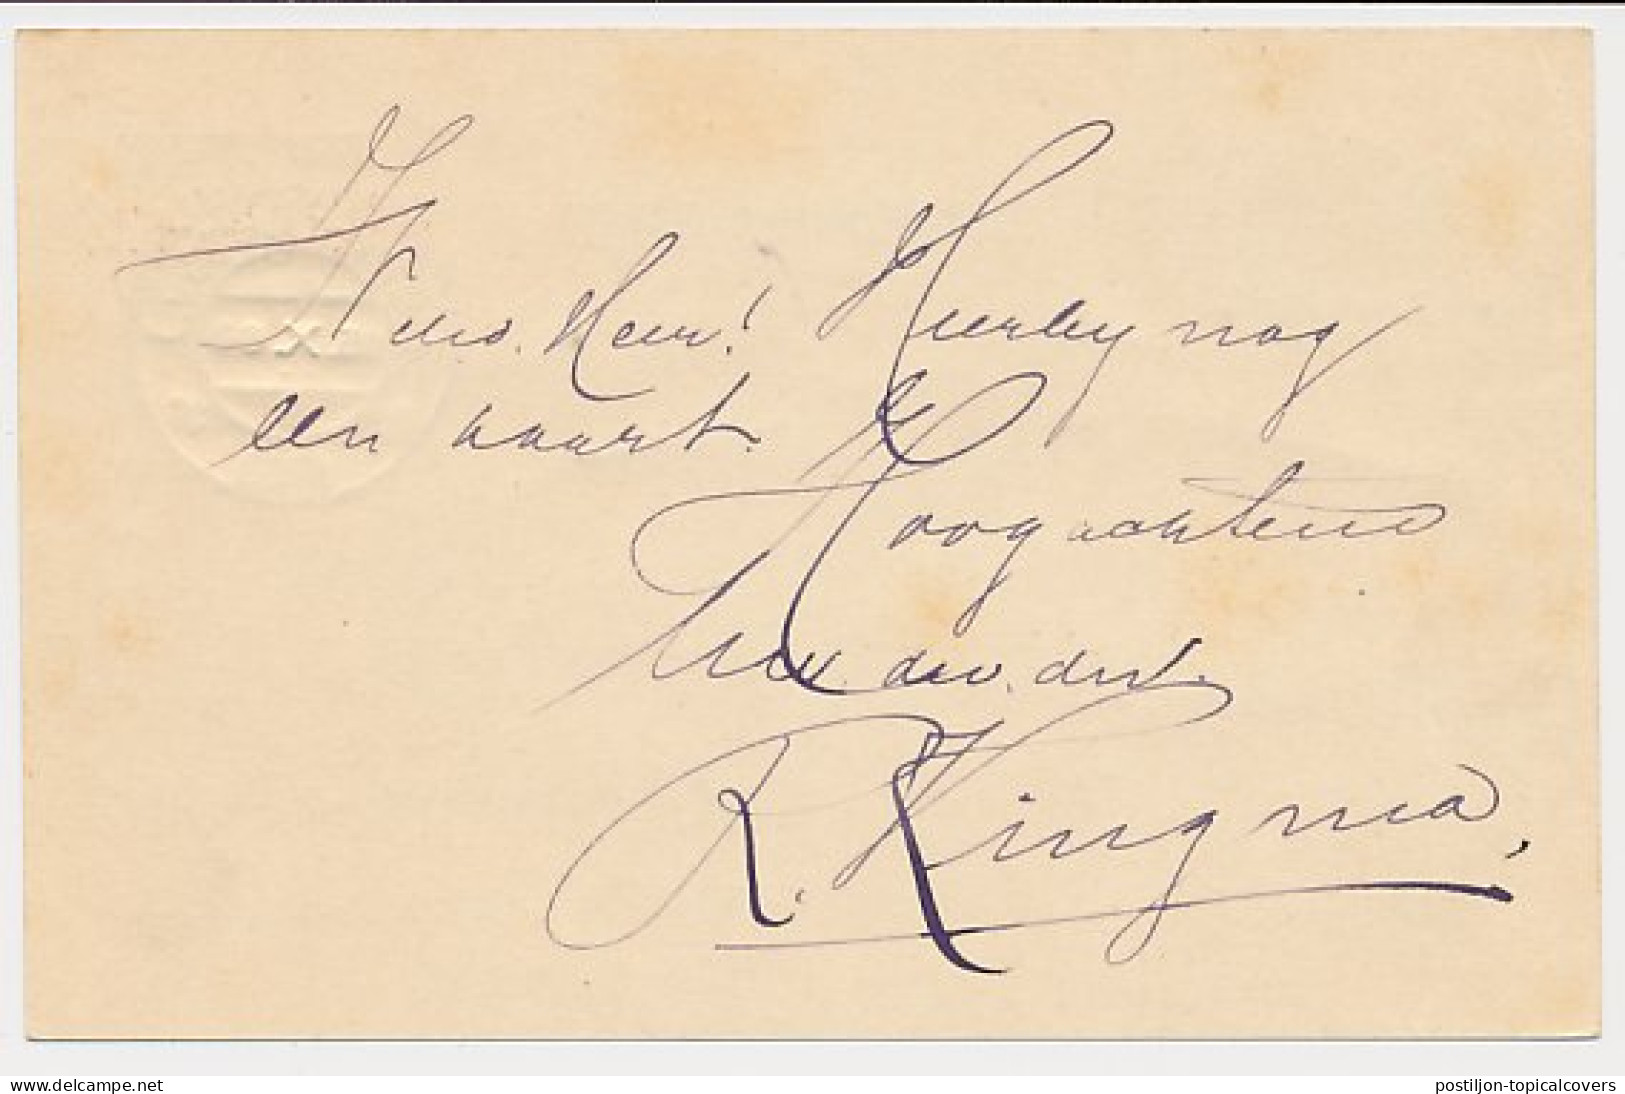 WelEd. Heer! Hierby nog
een kaart.
Hoogachtend
Uw. dw. dnr.
R. Kingma,
www.delcampe.net
postiljon-topicalcovers